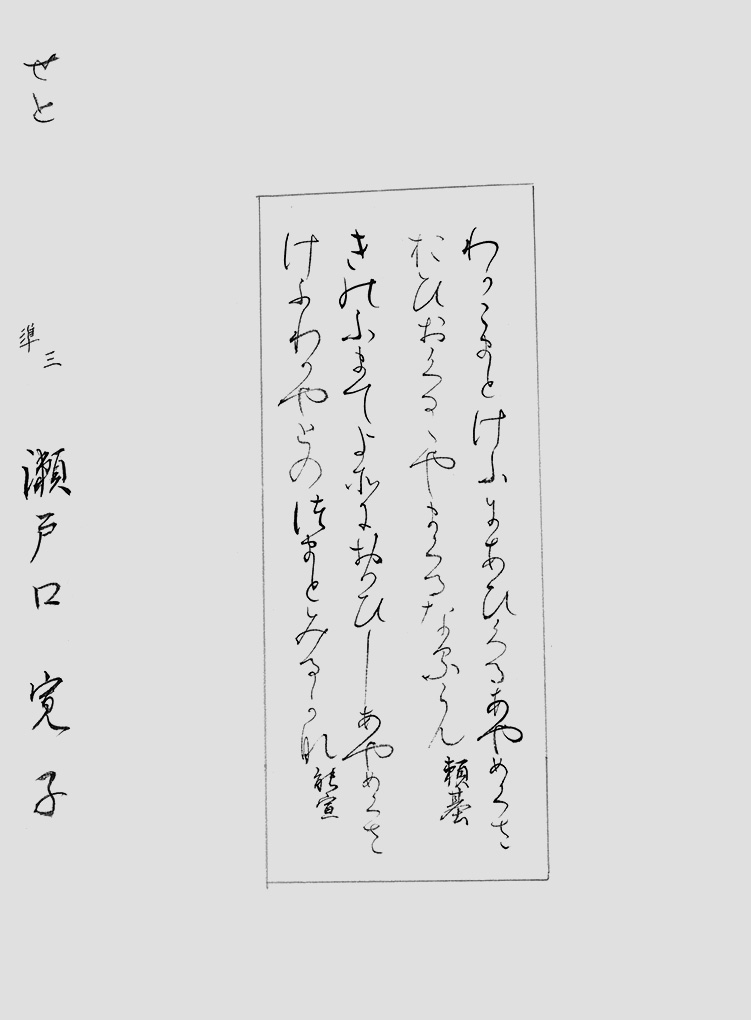 わかこまとけふにあひくるあやめくさ
おひおくるゝやまくるなるらん 頼基
きのふまてよそにおもひしあやめくさ
けふわかやとのつまとみるかな 能宣
せと 準三 瀬戸口 寛子